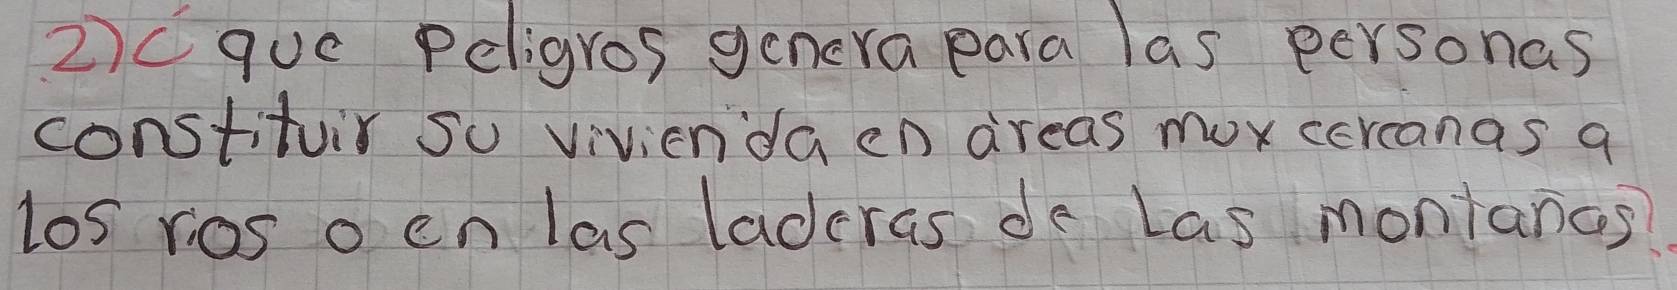 2)¿que peligros genera para las personas
constituir su vivienda en áreas muy cercanas a
los rios o en las laderas de Las montañas?